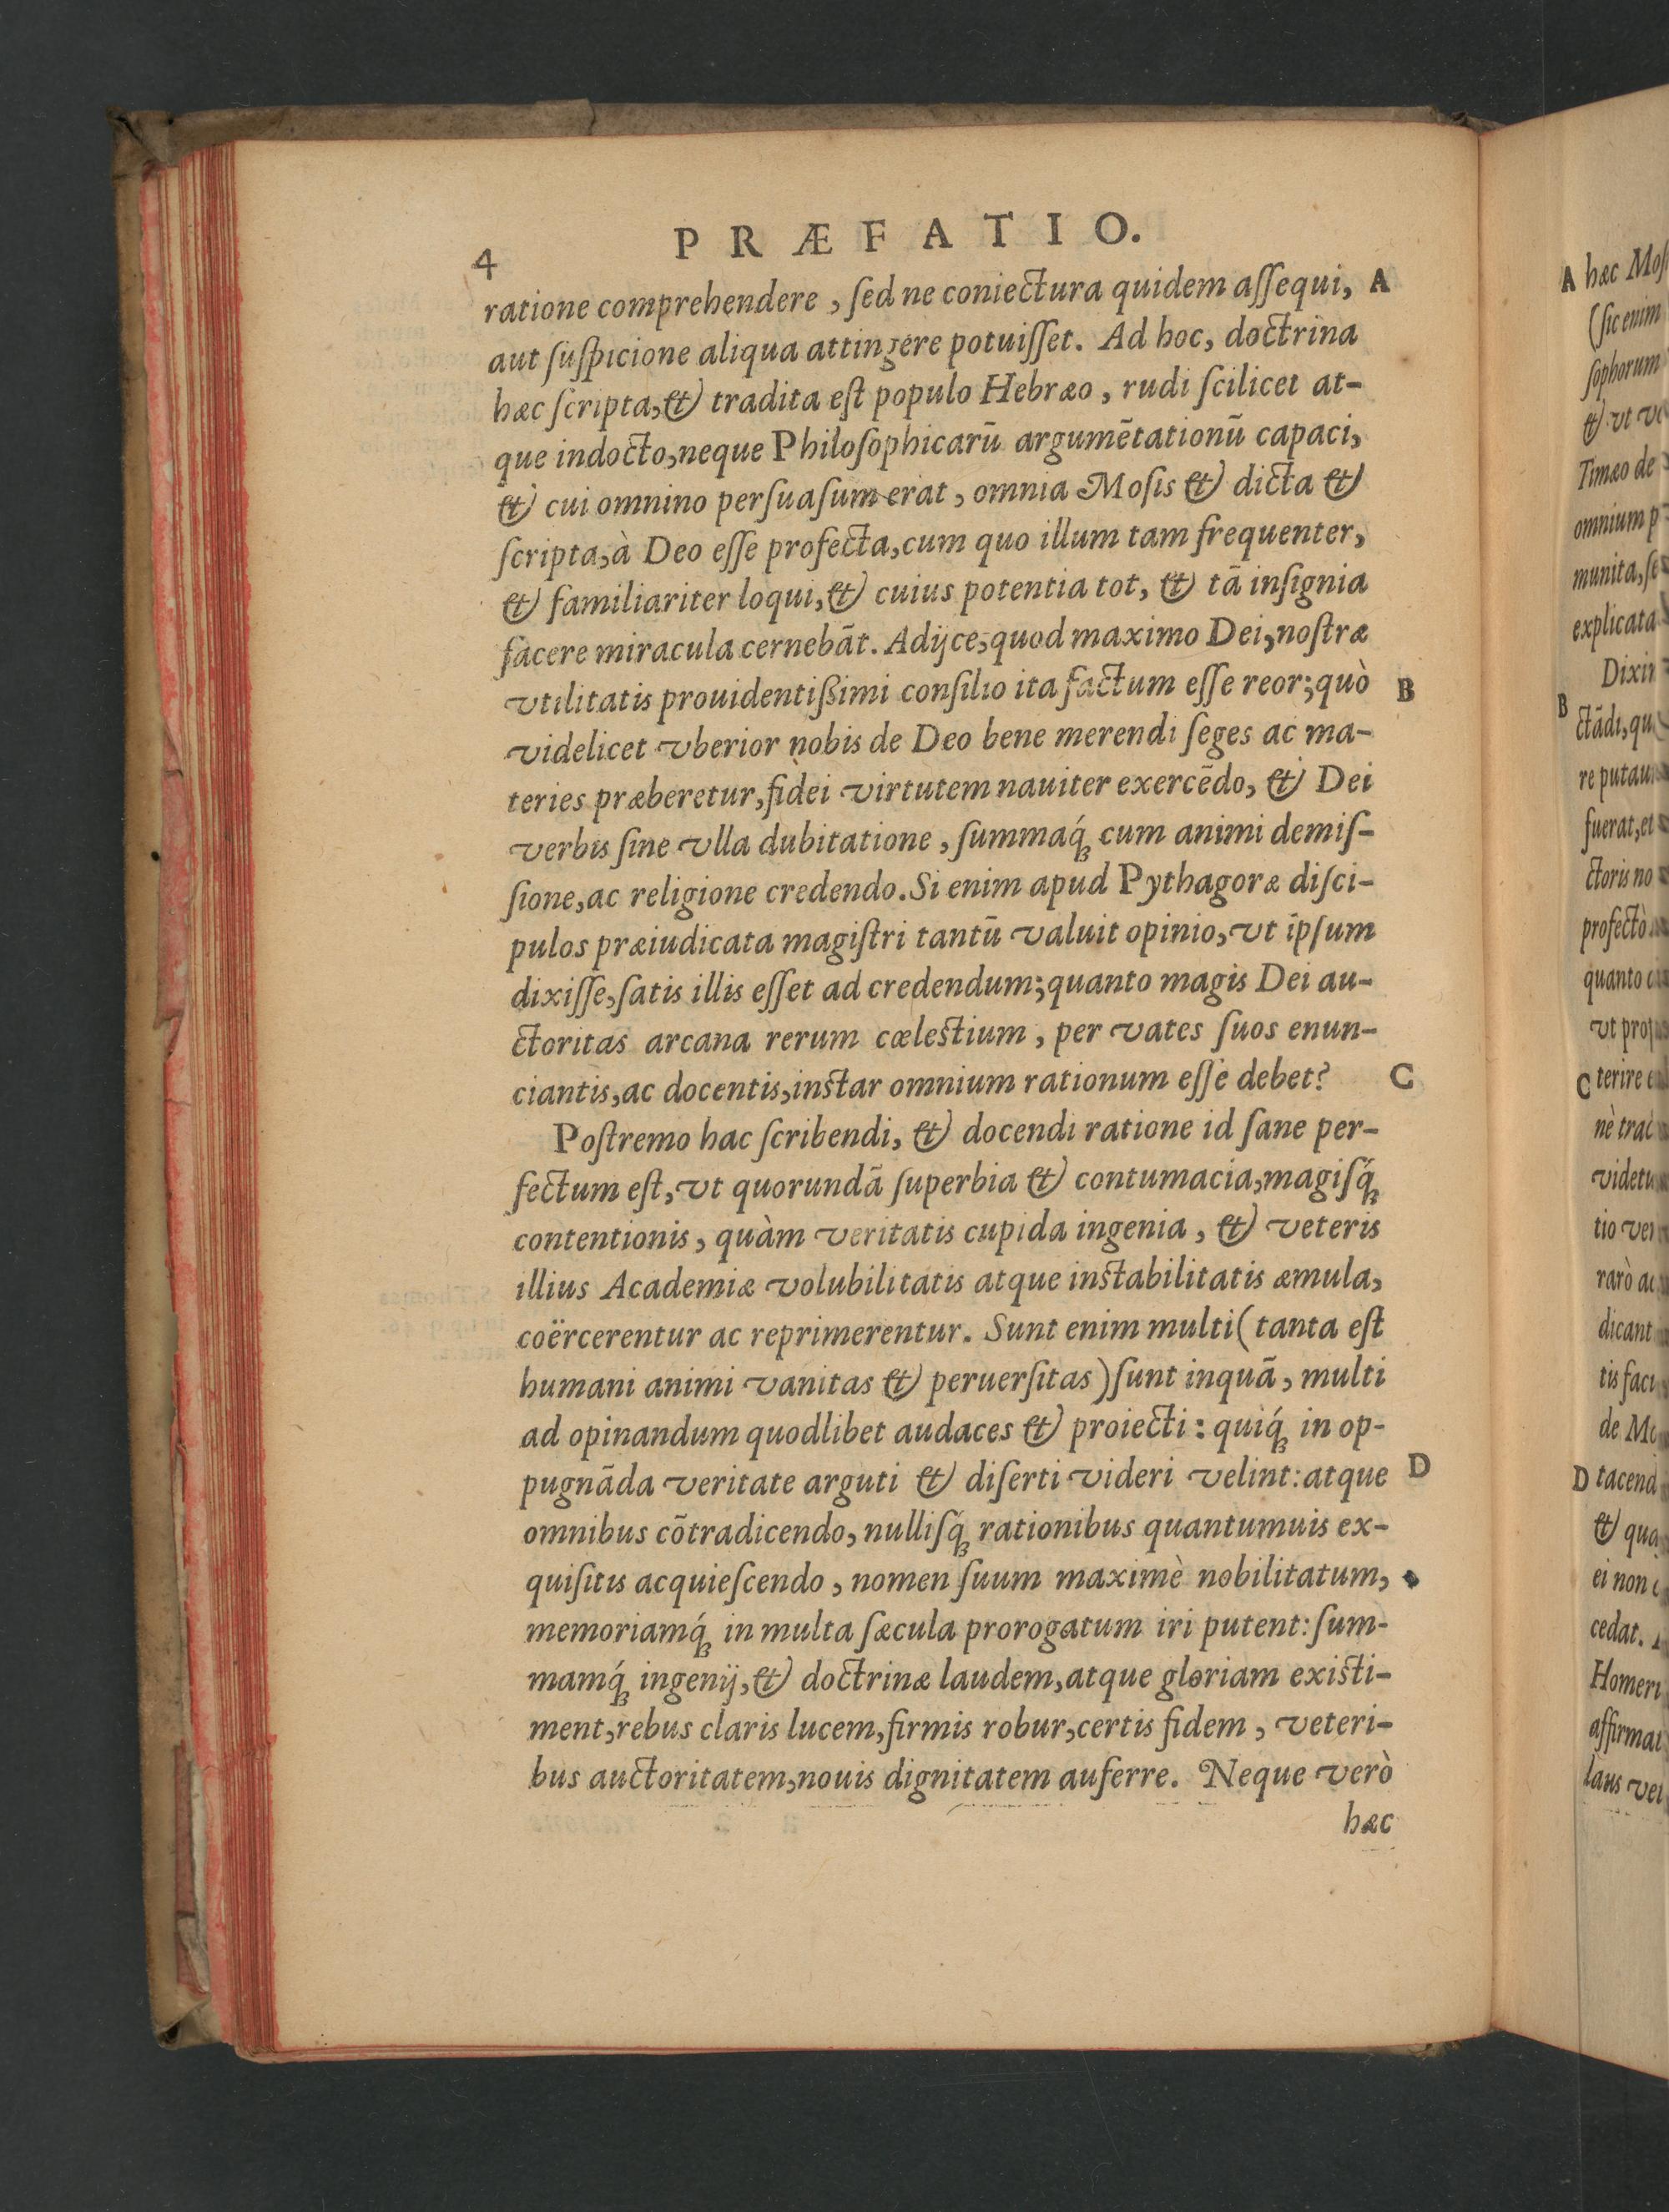 PRÆFATIO.
4
ratione comprehendere, ſed ne coniectura quidem aſſequi, A
aut ſuſpicione aliqua attingere potuiſſet. Ad hoc, doctrina
hæc ſcripta, & tradita eſt populo Hebræo, rudi ſcilicet at-
que indocto, neque Philoſophicarū argumētationū capaci,
& cui omnino perſuaſum erat, omnia Moſis & dicta &
ſcripta, à Deo eſſe profecta, cum quo illum tam frequenter,
& familiariter loqui, & cuius potentia tot, & tā inſignia
facere miracula cernebāt. Adijce, quod maximo Dei, noſtræ
vtilitatis prouidentißimi conſilio ita factum eſſe reor; quò B
videlicet vberior nobis de Deo bene merendi ſeges ac ma-
teries præberetur, fidei virtutem nauiter exercēdo, & Dei
verbis ſine vlla dubitatione, ſummaq́ꝫ cum animi demiſ-
ſione, ac religione credendo. Si enim apud Pythagoræ diſci-
pulos præiudicata magiſtri tantū valuit opinio, vt ipſum
dixiſſe, ſatis illis eſſet ad credendum; quanto magis Dei au-
ctoritas arcana rerum cæleſtium, per vates ſuos enun-
ciantis, ac docentis, inſtar omnium rationum eſſe debet? C
Poſtremo hac ſcribendi, & docendi ratione id ſane per-
fectum eſt, vt quorundā ſuperbia & contumacia, magiſq́ꝫ
contentionis, quàm veritatis cupida ingenia, & veteris
illius Academiæ volubilitatis atque inſtabilitatis æmula,
coërcerentur ac reprimerentur. Sunt enim multi (tanta eſt
humani animi vanitas & peruerſitas) ſunt inquā, multi
ad opinandum quodlibet audaces & proiecti: quiq́ꝫ in op-
pugnāda veritate arguti & diſerti videri velint: atque D
omnibus cōtradicendo, nulliſq́ꝫ rationibus quantumuis ex-
quiſitis acquieſcendo, nomen ſuum maximè nobilitatum,
memoriamq́ꝫ in multa ſæcula prorogatum iri putent: ſum-
mamq́ꝫ ingenij, & doctrinæ laudem, atque gloriam exiſti-
ment, rebus claris lucem, firmis robur, certis fidem, veteri-
bus auctoritatem, nouis dignitatem auferre. Neque verò
hæc
A hæc Moſ
(ſic enim
ſophorum
& vt ve
Timæo de
omnium p
munita, ſe
explicata
Dixi
B
ctādi, qu
re putau
fuerat, et
ctoris no
profectò
quanto
vt pro
C terire
nè tra
videtu
tio ver
rarò ac
dicant
tis faci
de Mo
D tacend
& qua
ei non
cedat.
Homeri
affirmat
laus vel